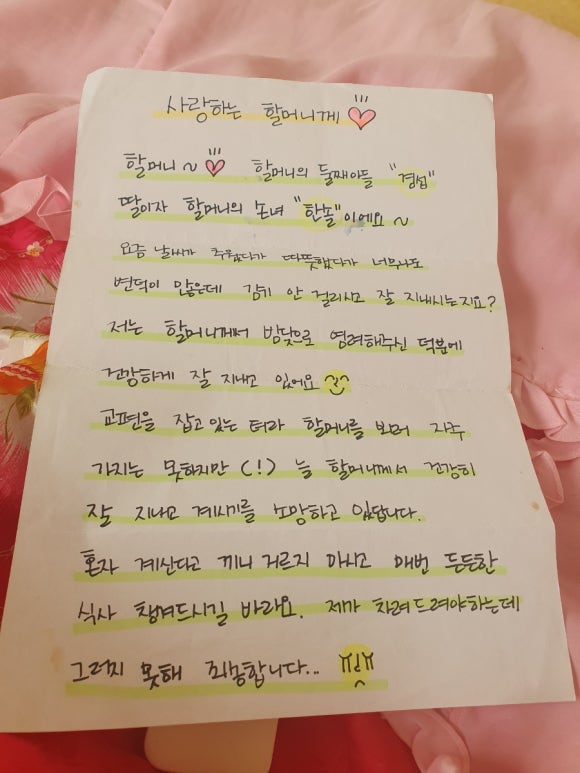 사랑하는 할머니께
할머니~ 할머니의 둘째아들 "경섭"
딸이자 할머니의 손녀 "한솔"이에요~
요즘 날씨가 추웠다가 따뜻했다가 너무나도
변덕이 많은데 감기 안 걸리시고 잘 지내시는지요?
저는 할머니께서 밤낮으로 염려해주신 덕분에
건강하게 잘 지내고 있어요
교편을 잡고있는 터라 할머니를 보러 자주
가지는 못하지만(!) 늘 할머니께서 건강히
잘 지내고 계시기를 소망하고 있답니다.
혼자 계신다고 끼니 거르지 마시고 매번 든든한
식사 챙겨드시길 바라요. 제가 차려드려야하는데
그러지 못해 죄송합니다...